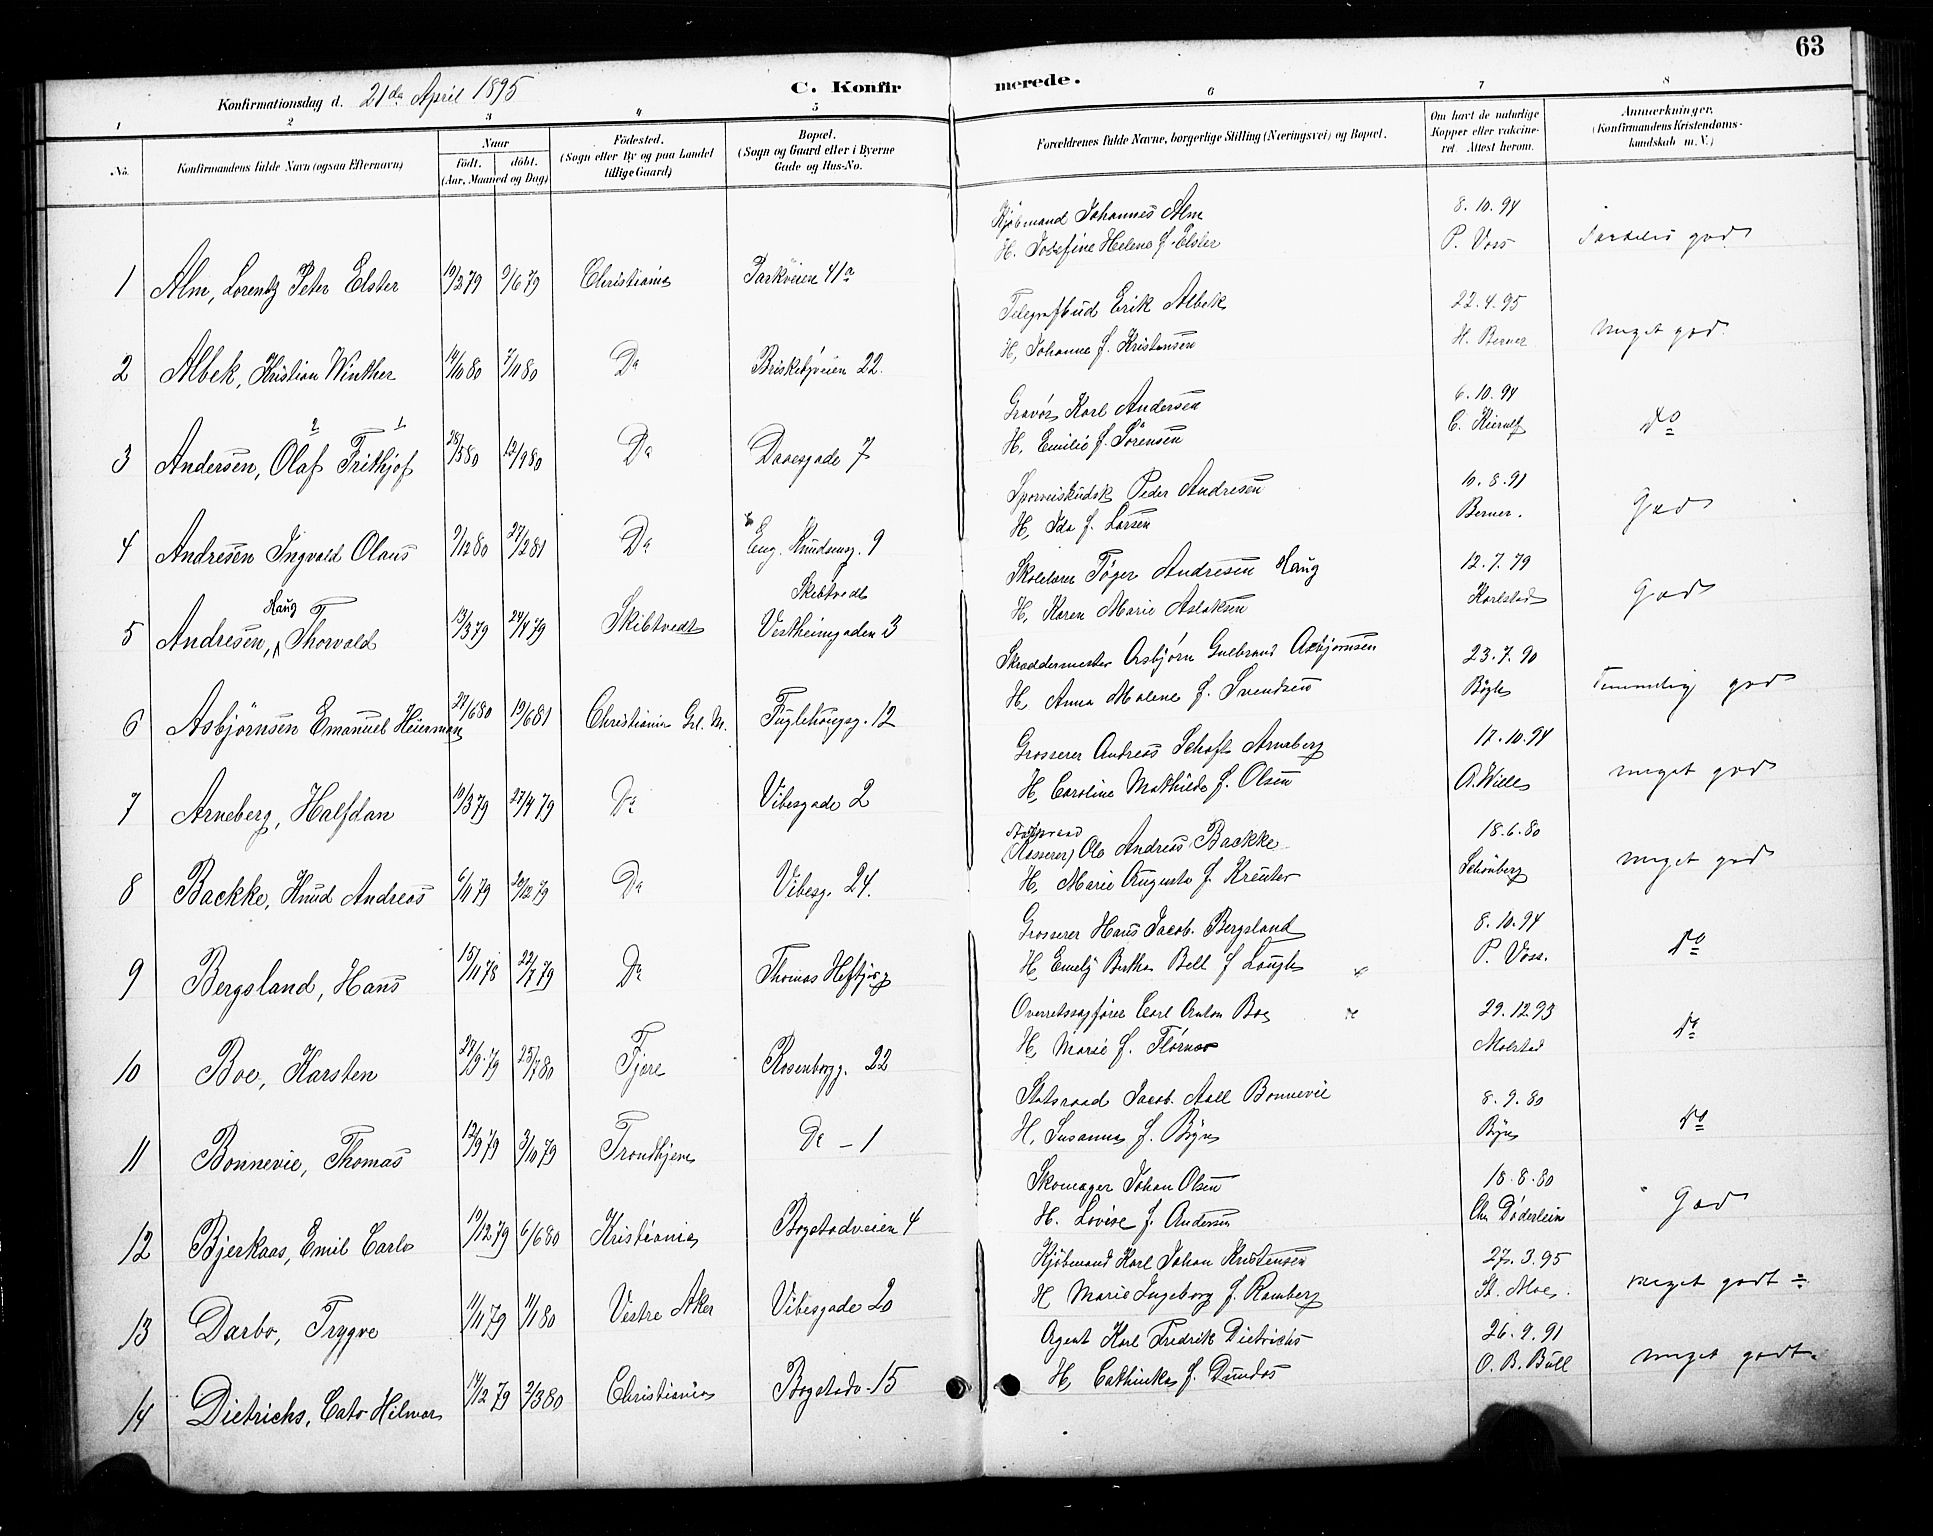 63
Konfirmationsdag d. 21de April 1895
C. Konfirmerede.
1 2 3 4 5 6 7 8
No.
Konfirmandens fulde Navn (ogsaa Efternavn)
Naar
födt. döbt.
(Aar, Maaned og Dag)
Födested.
(Sogn eller By og paa Landet
tillige Gaard)
Bopæl.
(Sogn og Gaard eller i Byerne
Gade og Hus-No.
Forældrenes fulde Navne, borgerlige Stilling (Næringsvei) og Bopæl.
Om havt de naturlige
Kopper eller vakcine-
ret. Attest herom.
Anmærkninger.
(Konfirmandens Kristendoms-
kundskab m. V.)
Kjöbmand Johannes Alm 8.10.94
H. Josefine Helene f. Elster P. Voss god
1 Alm, Lorentz Peter Elster 19/2 79 9/6 79 Christiania Parkveien 41a
Telegrafbud Erik Albek 22.4.95
H. Johanne f. Kristensen H. Berner meget god.
2 Albek, Kristian Winther 14/10 80 7/11 80 Do Briskebyveien 22.
Gravör Karl Andersen 6.10.94
H. Emilie f. Sörensen C. Kierulf do
3 Andersen, Olaf Frithjof 28/3 80 12/9 80 Do Daaesgade 7
2 1
Sporveiskudsk Peder Andresen 10.8.91
H. Ida f. Larsen Berner. God
4 Andresen Ingvald Olaus 9/12 80 27/2 81 Do Eug. Knudseng. 9
Skolelærer Töger Andresen Haug 12.7.79
H. Karen Marie Aslaksen Karlstad God
5 Andresen, Haug Thorvald 13/3 79 24/4 79 Skibtvedt Skibtvedt
Vestheimgaden 3
Skræddermester Asbjörn Gulbrand Asbjörnsen 23.7.90
H. Anna Malene f. Svendsen Bögh Temmelig god
6 Asbjörnsen Emanuel Heierman 27/6 80 19/6 81 Christiania Grl. M. Fuglehaugsg. 12
Grosserer Andreas Schaft Arneberg 17.10.94
H. Caroline Mathilde f. Olsen A. Wille meget god
7 Arneberg, Halfdan 19/3 79 27/4 79 Do Vibesgade 2
(Kasserer) Ole Andreas Backke 18.6.80
H. Marie Augusta f. Kreuter Schönberg meget god
8 Backke, Knud Andreas 6/11 79 29/12 79 Do Vibesg. 24.
Grosserer Hans Jacob Bergsland 8.10.94
H. Emely Bertha Bell f. Lough P. Voss. do
9 Bergsland, Hans 15/11 78 22/7 79 Do Thomas Heftjesg
Overretssagförer Carl Anton Boe 29.12.93
H. Marie f. Flörnæs Molstad do
10 Boe, Karsten 27/9 79 25/7 80 Fjære Rosenborgg. 22
Statsraad Jacob Aall Bonnevie 8.9.80
H. Susanne f. Bryn Bryn do
11 Bonnevie, Thomas 12/9 79 3/10 79 Trondhjem Do - 1
Skomager Johan Olsen 18.8.80
H. Lovise f. Andersen Chr Döderlein God
12 Bjerkaas, Emil Carlo 19/12 79 6/6 80 Kristiania Bogstadveien 4
Kjöbmand Karl Johan Kristensen 27.3.95
H Marie Ingeborg f. Ramberg St. Moe. meget godt
13 Darbo, Trygve 11/11 79 11/1 80 Vestre Aker Vibesgade 20
Agent Karl Fredrik Dietrichs 26.9.91
H. Cathinka f. Dundas O. B. Bull meget godt
14 Dietrichs, Cato Hilmar 14/12 79 2/3 80 Christiania Bogstadv. 15